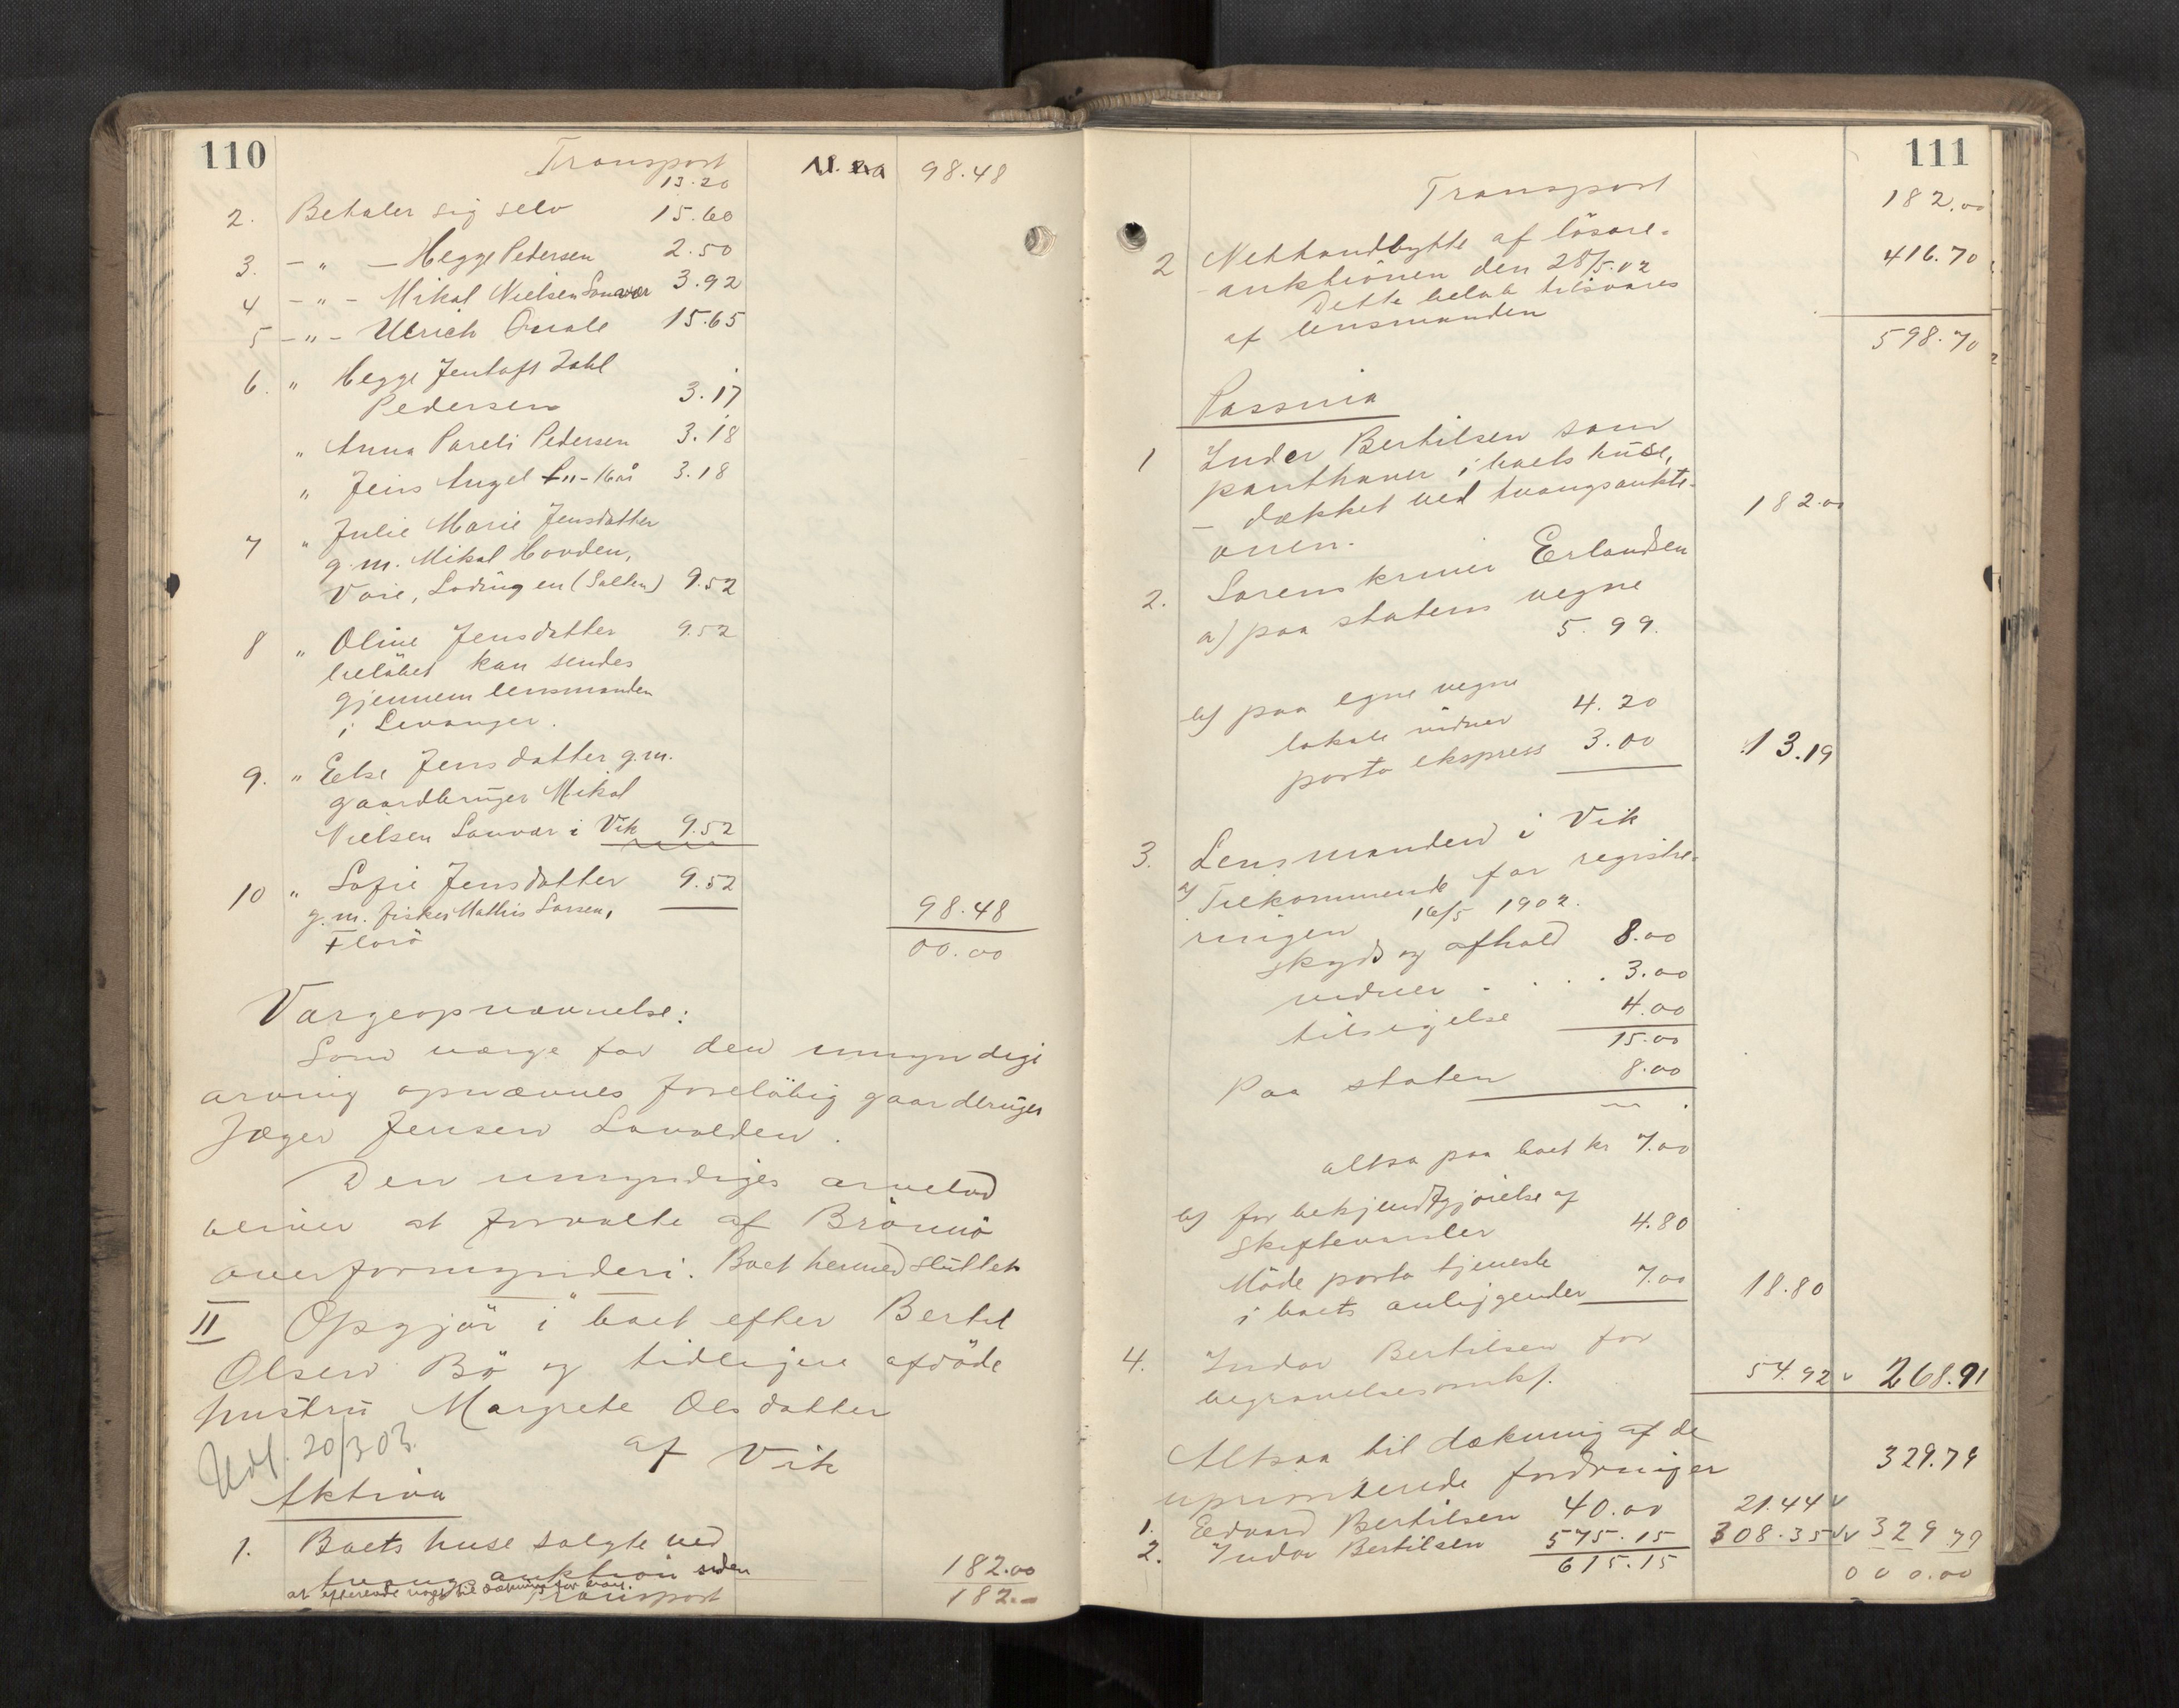 110
Transport 98.48
13.20
2. Betaler sig selv 15.60
3. - " - Hegge Pedersen 2.50
4 - " - Mikal Nielsen Sauvær 3.92
5 - " - Ulrich Qvale 15.65
6. " Hegge Jentoft Dahl
Pedersen 3.17
" Anna Pareli Pedersen 3.18
" Jens Angel - " - 16 år 3.18
7 " Julie Marie Jensdatter
g.m. Mikal Hovden,
Voie, Lødingen (Salten) 9.52
8 " Oline Jensdatter 9.52
beløbet kan sendes
gjennem lensmanden
i Levanger.
9. " Else Jensdatter g.m.
gaardbruger Mikal
Nielsen Sauvær i Vik 9.52
10 " Sofie Jensdatter 9.52
g.m. fisker Mathis Larsen,
Florö 98.48
00.00
Værgeopnævnelse:
Som værge for den umyndige
arving opnævnes foreløbig gaardbruger
Jæger Jensen
Den umyndiges arvelod
bliver at forvalte af Brönnö
overformynderi. Boet hermed sluttet
II Opgjör i boet efter Bertel
Olsen Bö og tidligere afdöde
hustru Margrete Olsdatter
af Vik
Udl. 20/3 03.
Aktiva
1. Boets huse solgte ved
tvangsauktion uden
at efterlade noget til dækning for boet. 182.00
Transport 182.-
111
Transport 182.00
2 Nettoudbytte af lösöre-
auktionen den 28/5.02 416.70
Dette beløb tilsvares
af lensmanden
598.70
Passiva
1 Indor Bertilsen som
panthaver i boets huse,
- dækket ved tvangsaukti-
onen. 182.00
2. Sorenskriver Erlandsen
a) paa statens vegne
5.99.
b) paa egne vegne
lokale vidner 4.20
porto ekspress 3.00 13.19
3. Lensmanden i Vik
a) Tilkommende for registre-
ringen 16/5 1902.
skyds og ophold 8.00
vidner . . . . 3.00
tilsigelse 4.00
15.00
Paa staten 8.00
altsa paa boet kr 7.00
b) for bekjendtgjörelse af
skiftevarsler 4.80
Möde porto tjeneste
i boets anliggender 7.00 18.80
4. Indor Bertilsen for
begravelsesomk. 54.92 268.91
Altsaa til dækning af de
uprioriterede fordringer 329.79
1. Edvard Bertilsen 40.00 21.44
2. Indor Bertilsen 575.15 308.35 329 79
615.15 000.00